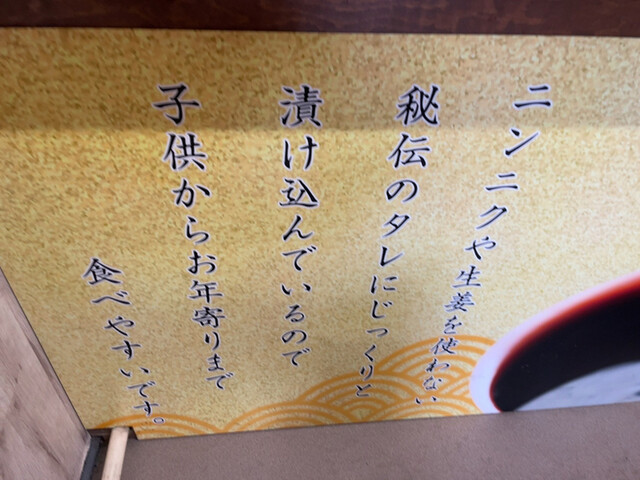 ニンニクや生姜を使わない
秘伝のタレにじっくりと
漬け込んでいるので
子供からお年寄りまで
食べやすいです。